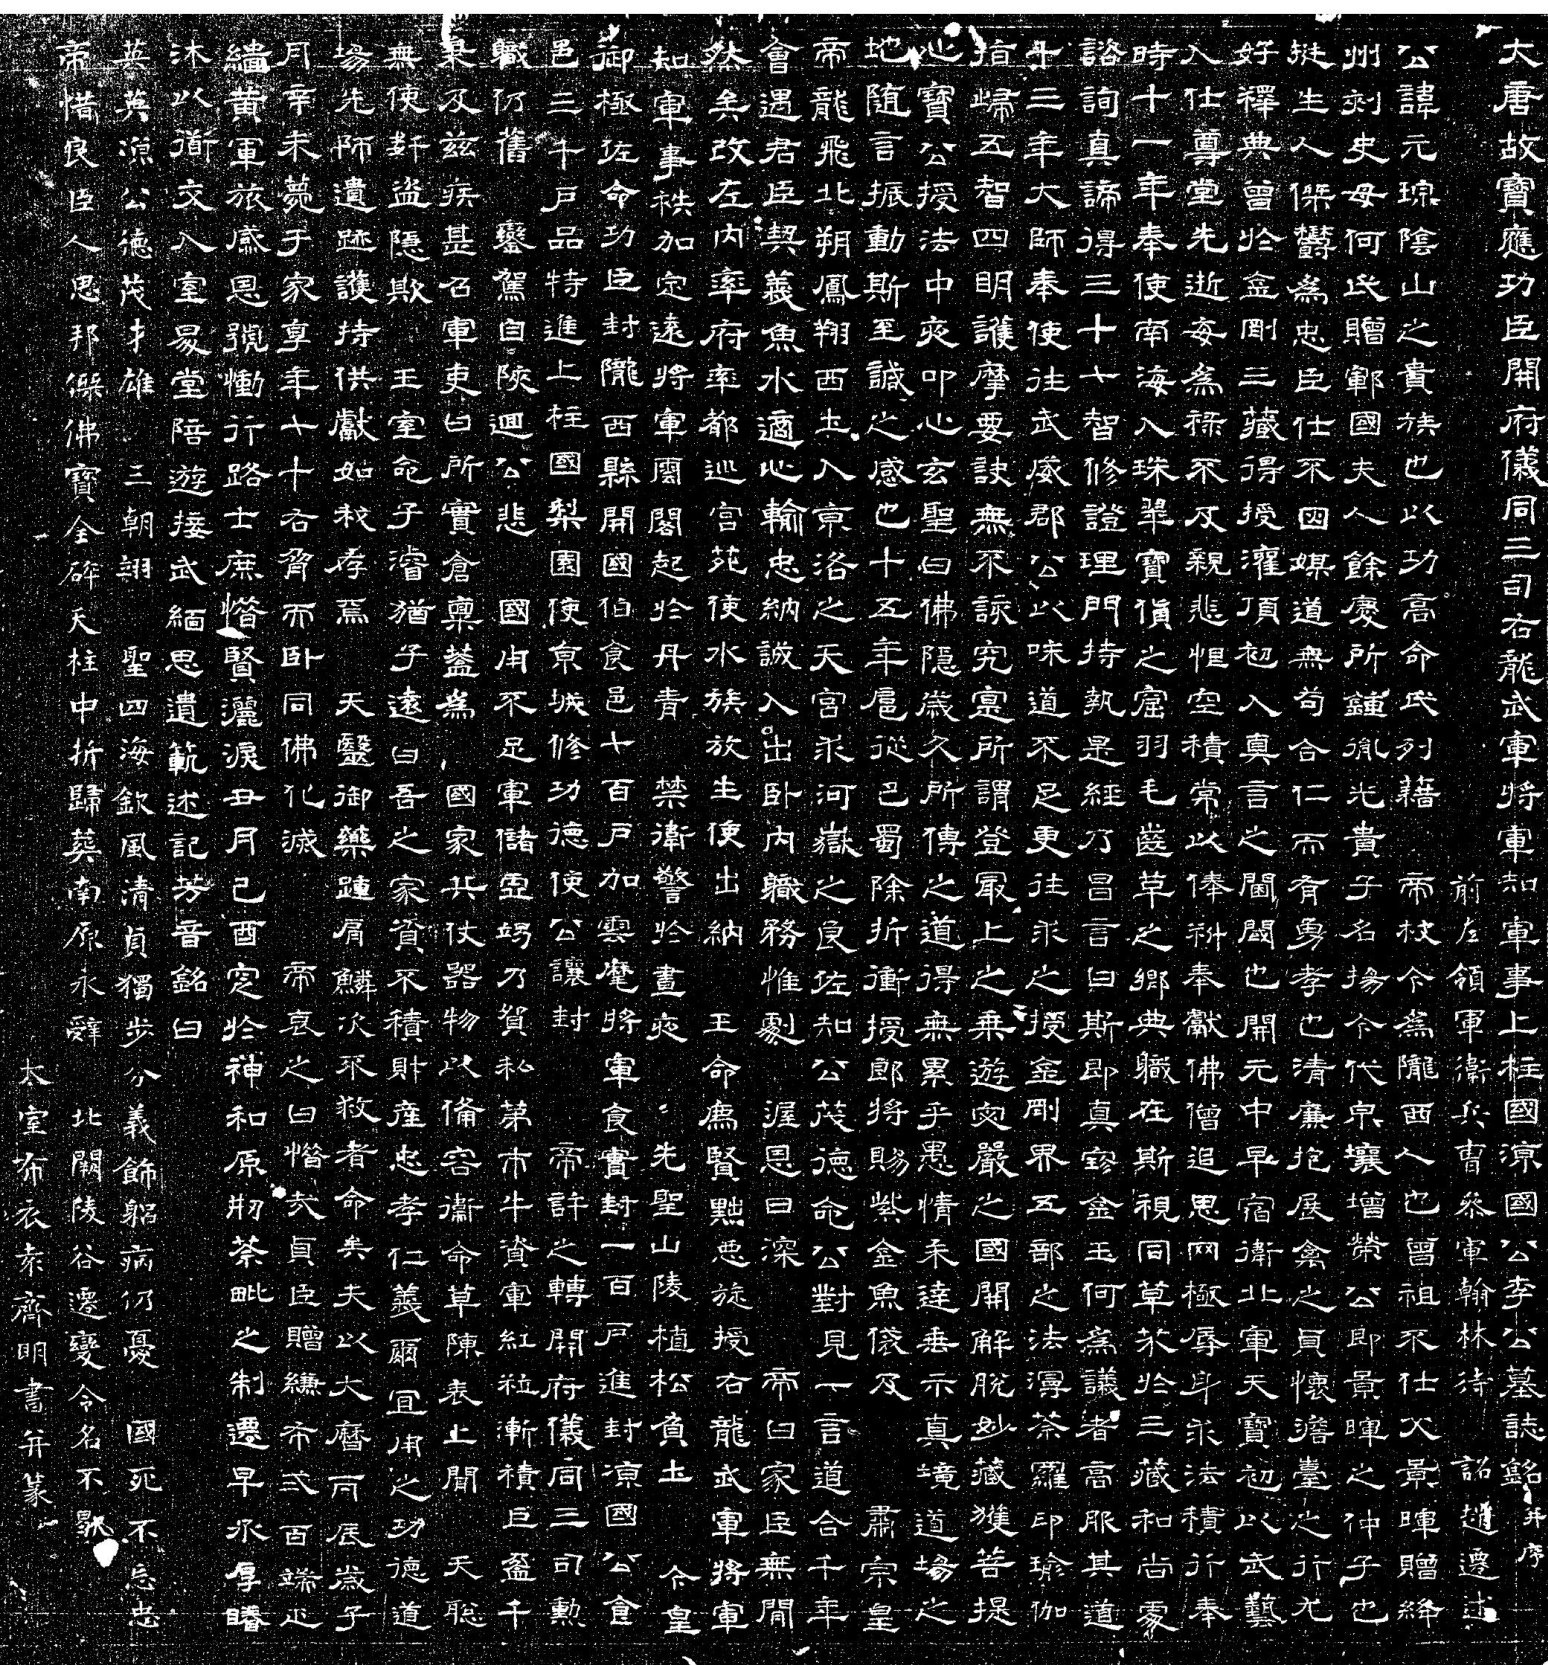 大唐故寶應功臣開府儀同三司右龍武軍將軍知軍事上柱國涼國公李公墓誌銘并序
前左領軍衛兵曹參軍翰林待 詔趙遷述
公諱元琮陰山之貴族也以功高命氏列藉 帝枝今為隴西人也曾祖不仕父景暉贈絳
州刺史母何氏贈鄆國夫人餘慶所鍾胤光貴子名揚今代泉壤增榮公即景暉之仲子也
挺生人傑欝為忠臣仕不因媒道無苟合仁而有勇孝也清廉抱展禽之貞懷澹臺之行尤
好釋典曾於金剛三藏得授灌頂初入真言之閫閾也開元中早宿衛北軍天寶初以武藝
入仕尊堂先逝每為祿不及親悲恒空積常以俸料奉獻佛僧追思罔極辱身求法積行奉
時十一年奉使南海入珠翠寶貨之窟羽毛齒草之鄉典職在斯視同草芥於三藏和尚處
諮詢真諦得三十七智修證理門持執是經乃昌言曰斯即真寶金玉何為議者高服其道
十三年大師奉使往武威郡公以味道不足更往求之授金剛界五部之法淂荼羅印瑜伽
指歸五智四明護摩要訣無不詠究寔所謂登最上之乗遊密嚴之國開解脫妙藏獲菩提
心寶公授法中夾叩心玄聖曰佛隱歲久所傳之道得無累乎愚情未達垂示真境道場之
地隨言振動斯至誠之感也十五年扈從巴蜀除折衝授郎將賜紫金魚袋及 肅宗皇
帝龍飛北朔鳳翔西土入京洛之天宮求河嶽之良佐知公茂德命公對見一言道合千年
會遇君臣契義魚水適心輸忠納誠入出卧內職務惟劇 渥恩日深 帝曰家臣無閒
然矣改左內率府率都巡宮苑使水族放生使出納 王命廌賢黜惡旋授右龍武軍將軍
知軍事秩加定遠將軍圖閣起於丹青 禁衛警於晝夾 先聖山陵植松負土 今皇
御極佐命功臣封隴西縣開國伯食邑七百戶加雲麾將軍食實封一百戶進封涼國公食
邑三千戶品特進上柱國梨園使京城修功德使公讓封 帝許之轉開府儀同三司勳
職仍舊 鑾駕自陝迴公悲 國用不足軍儲虛竭乃貿私第市牛資軍紅粒漸積巨盈千
束及茲疾甚召軍吏曰所實倉稟蓋為 國家兵仗器物以備容衛命草陳表上聞 天聡
無使姧盜隱欺 王室命子濬猶子遠曰吾之家資不積財產忠孝仁義爾宜用之功德道
場先師遺跡護持供獻如我存焉 天毉御藥踵肩鱗次不救者命矣夫以大曆丙辰歲子
月辛未薨于家享年七十右脅而卧同佛化滅 帝哀之曰惜哉貞臣贈縑布弍百端疋
繐黃軍旅感恩號慟行路士庶惜賢灑淚丑月己酉窆於神和原㓝荼毗之制遷早承厚瞻
沐以衜交入室昜堂陪遊接武緬思遺範述記芳音銘曰
英英涼公德茂才雄 三朝翊 聖四海欽風清貞獨步分義飾躬病仍憂 國死不忘忠
帝惜良臣人思邦傑佛寶全碎天柱中折歸葬南原永辞 北闕陵谷遷變令名不歇
太室布衣索齊明書并篆